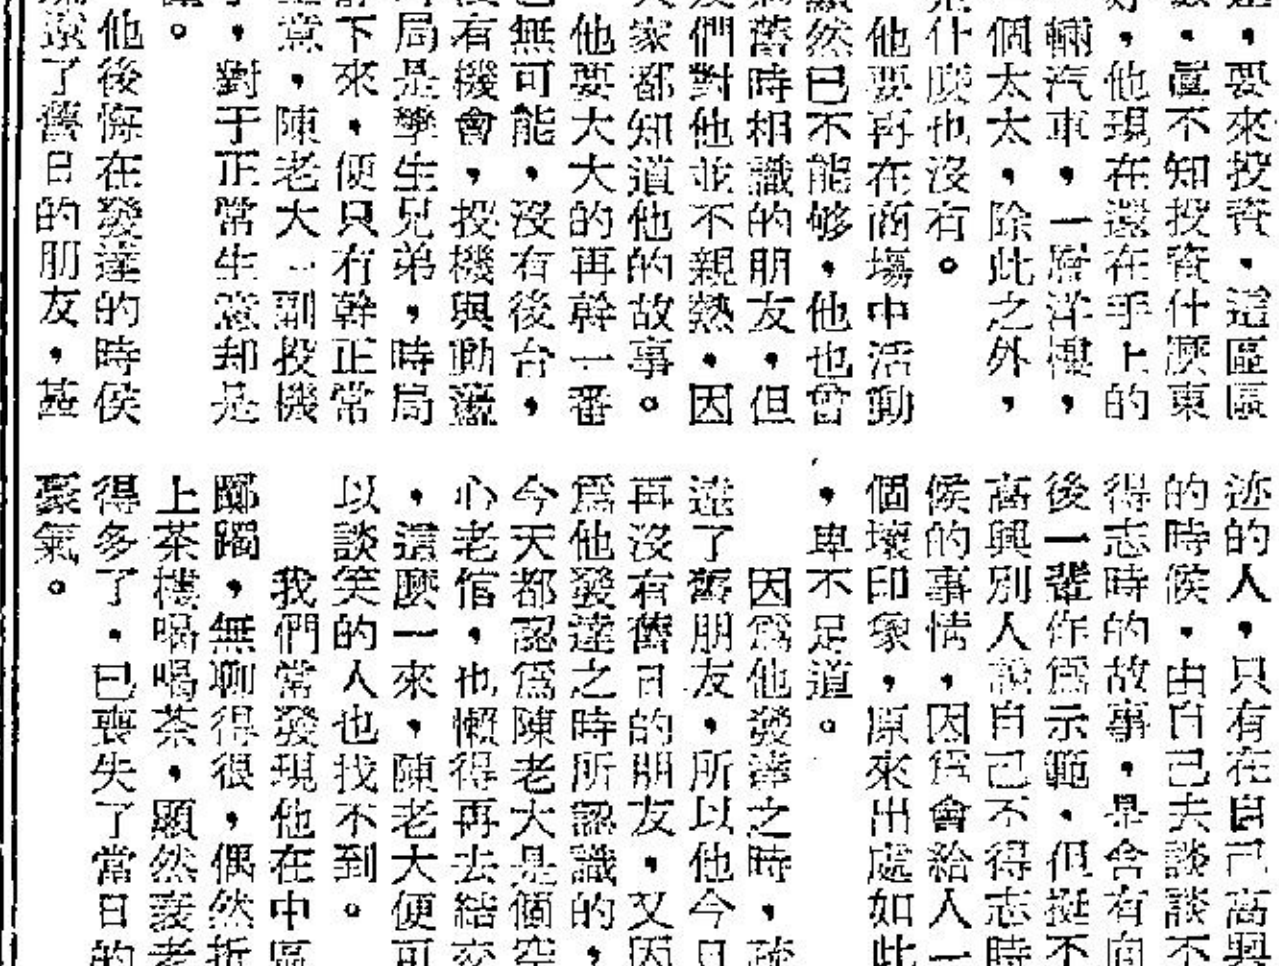 ，要來投資，這區區
，眞不知投資什麽東
，他現在還在手上的
輛汽車，一層洋樓，
個太太，除此之外，
什麽也沒有。
他要再在商塲中活動
然已不能够，他也曾
舊時相識的朋友，但
們對他並不親熱，因
家都知道他的故事。
他要大大的再幹一番
無可能，沒有後台，
有機會，投機與動盪
局是孿生兄弟，時局
下來，便只有幹正常
意，陳老大一副投機
，對于正常生意却是
。
他後悔在發達的時侯
了舊日的朋友，甚
迹的人，只有在自己高興
的時候，由自己去談談不
得志時的故事，是含有向
後一輩作爲示範，但挺不
高興別人說自己不得志時
候的事情，因爲會給人一
個壞印象，原來出處如此
，卑不足道。
因爲他發達之時，疏
達了舊朋友，所以他今日
再沒有舊日的朋友，又因
爲他發達之時所認識的，
今天都認爲陳老大是個空
心老信，也懶得再去結交
，這麽一來，陳老大便可
以談笑的人也找不到。
我們常發現他在中區
躑躅，無聊得很，偶然折
上茶樓喝喝茶，顯然衰老
得多了，已喪失了當日的
豪氣。